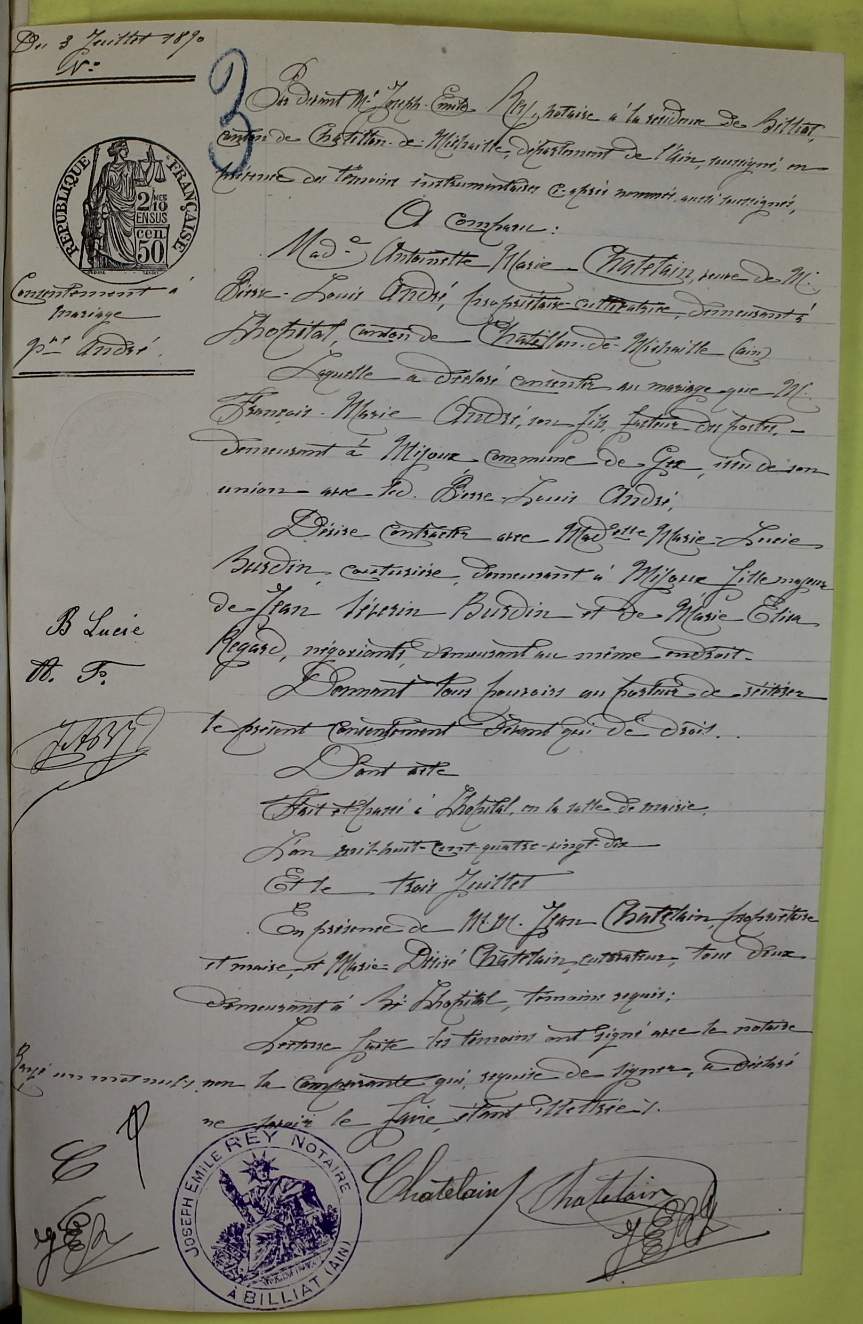 Du 3 Juillet 1890
N°
3
RÉPUBLIQUE FRANÇAISE
2/10 EN SUS
50 cen
Consentement à
mariage
pr André.
Par devant Me Joseph-Emile Rey, notaire à la résidence de Billiat,
canton de Chatillon-de-Michaille, département de l'Ain, soussigné, en
présence des témoins instrumentaires ci-après nommés, aussi soussignés,
A comparu :
Made Antoinette Marie Chatelain, veuve de M.
Pierre-Louis André, propriétaire-cultivatrice, demeurant à
Lhopital, canton de Chatillon-de-Michaille (Ain)
Laquelle a déclaré consentir au mariage que M.
François-Marie André, son fils, facteur des postes,
demeurant à Mijoux commune de Gex, issu de son
union avec led. Pierre-Louis André,
Désire contracter avec Madelle Marie-Lucie
Burdin, couturière, demeurant à Mijoux, fille majeure
de Jean Séverin Burdin et de Marie Elisa
Regard, négociants, demeurant au même endroit.
Donnant tous pouvoirs au porteur de réitérer
le présent consentement devant qui de droit.
Dont acte
Fait et passé à Lhopital, en la salle de mairie,
L'an mil-huit-cent-quatre-vingt-dix
Et le trois Juillet
En présence de M.M. Jean Chatelain, propriétaire
et maire, et Marie-Désiré Chatelain, cultivateur, tous deux
demeurant à Lhopital, témoins requis;
Lecture faite les témoins ont signé avec le notaire
non la comparante qui, requise de signer, a déclaré
ne savoir le faire, étant illettrée ./.
B Lucie
A. F.
Rayé un mot nul
C
JER
JOSEPH EMILE REY NOTAIRE
A BILLIAT (AIN)
Chatelain
Chatelain
JERey